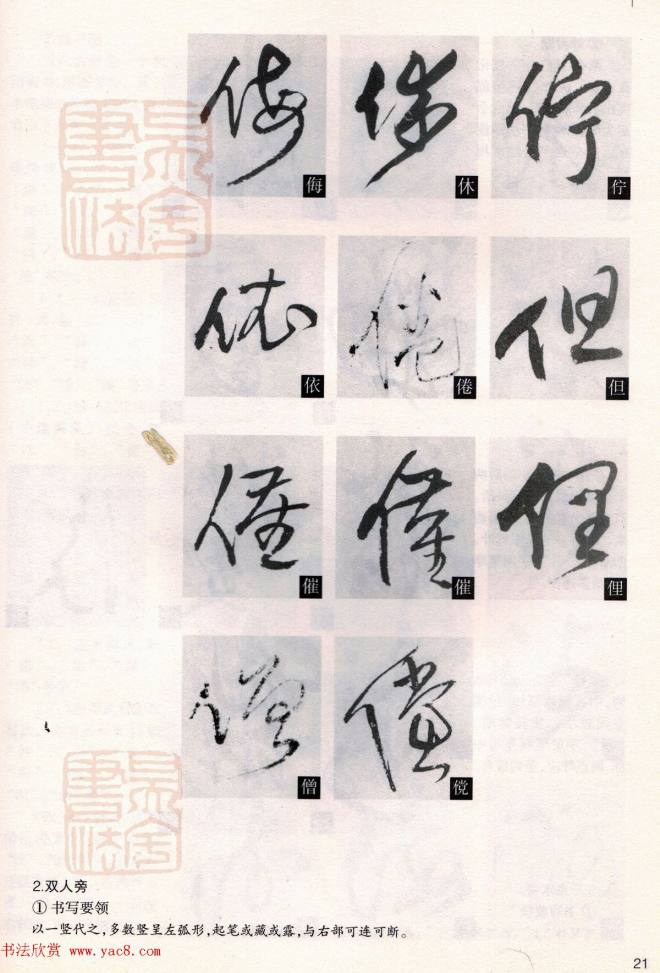 侮 休 佇
依 倦 但
催 催 俚
僧 傥
2.双人旁
① 书写要领
以一竖代之，多数竖呈左弧形，起笔或藏或露，与右部可连可断。
书法欣赏 www.yac8.com
21